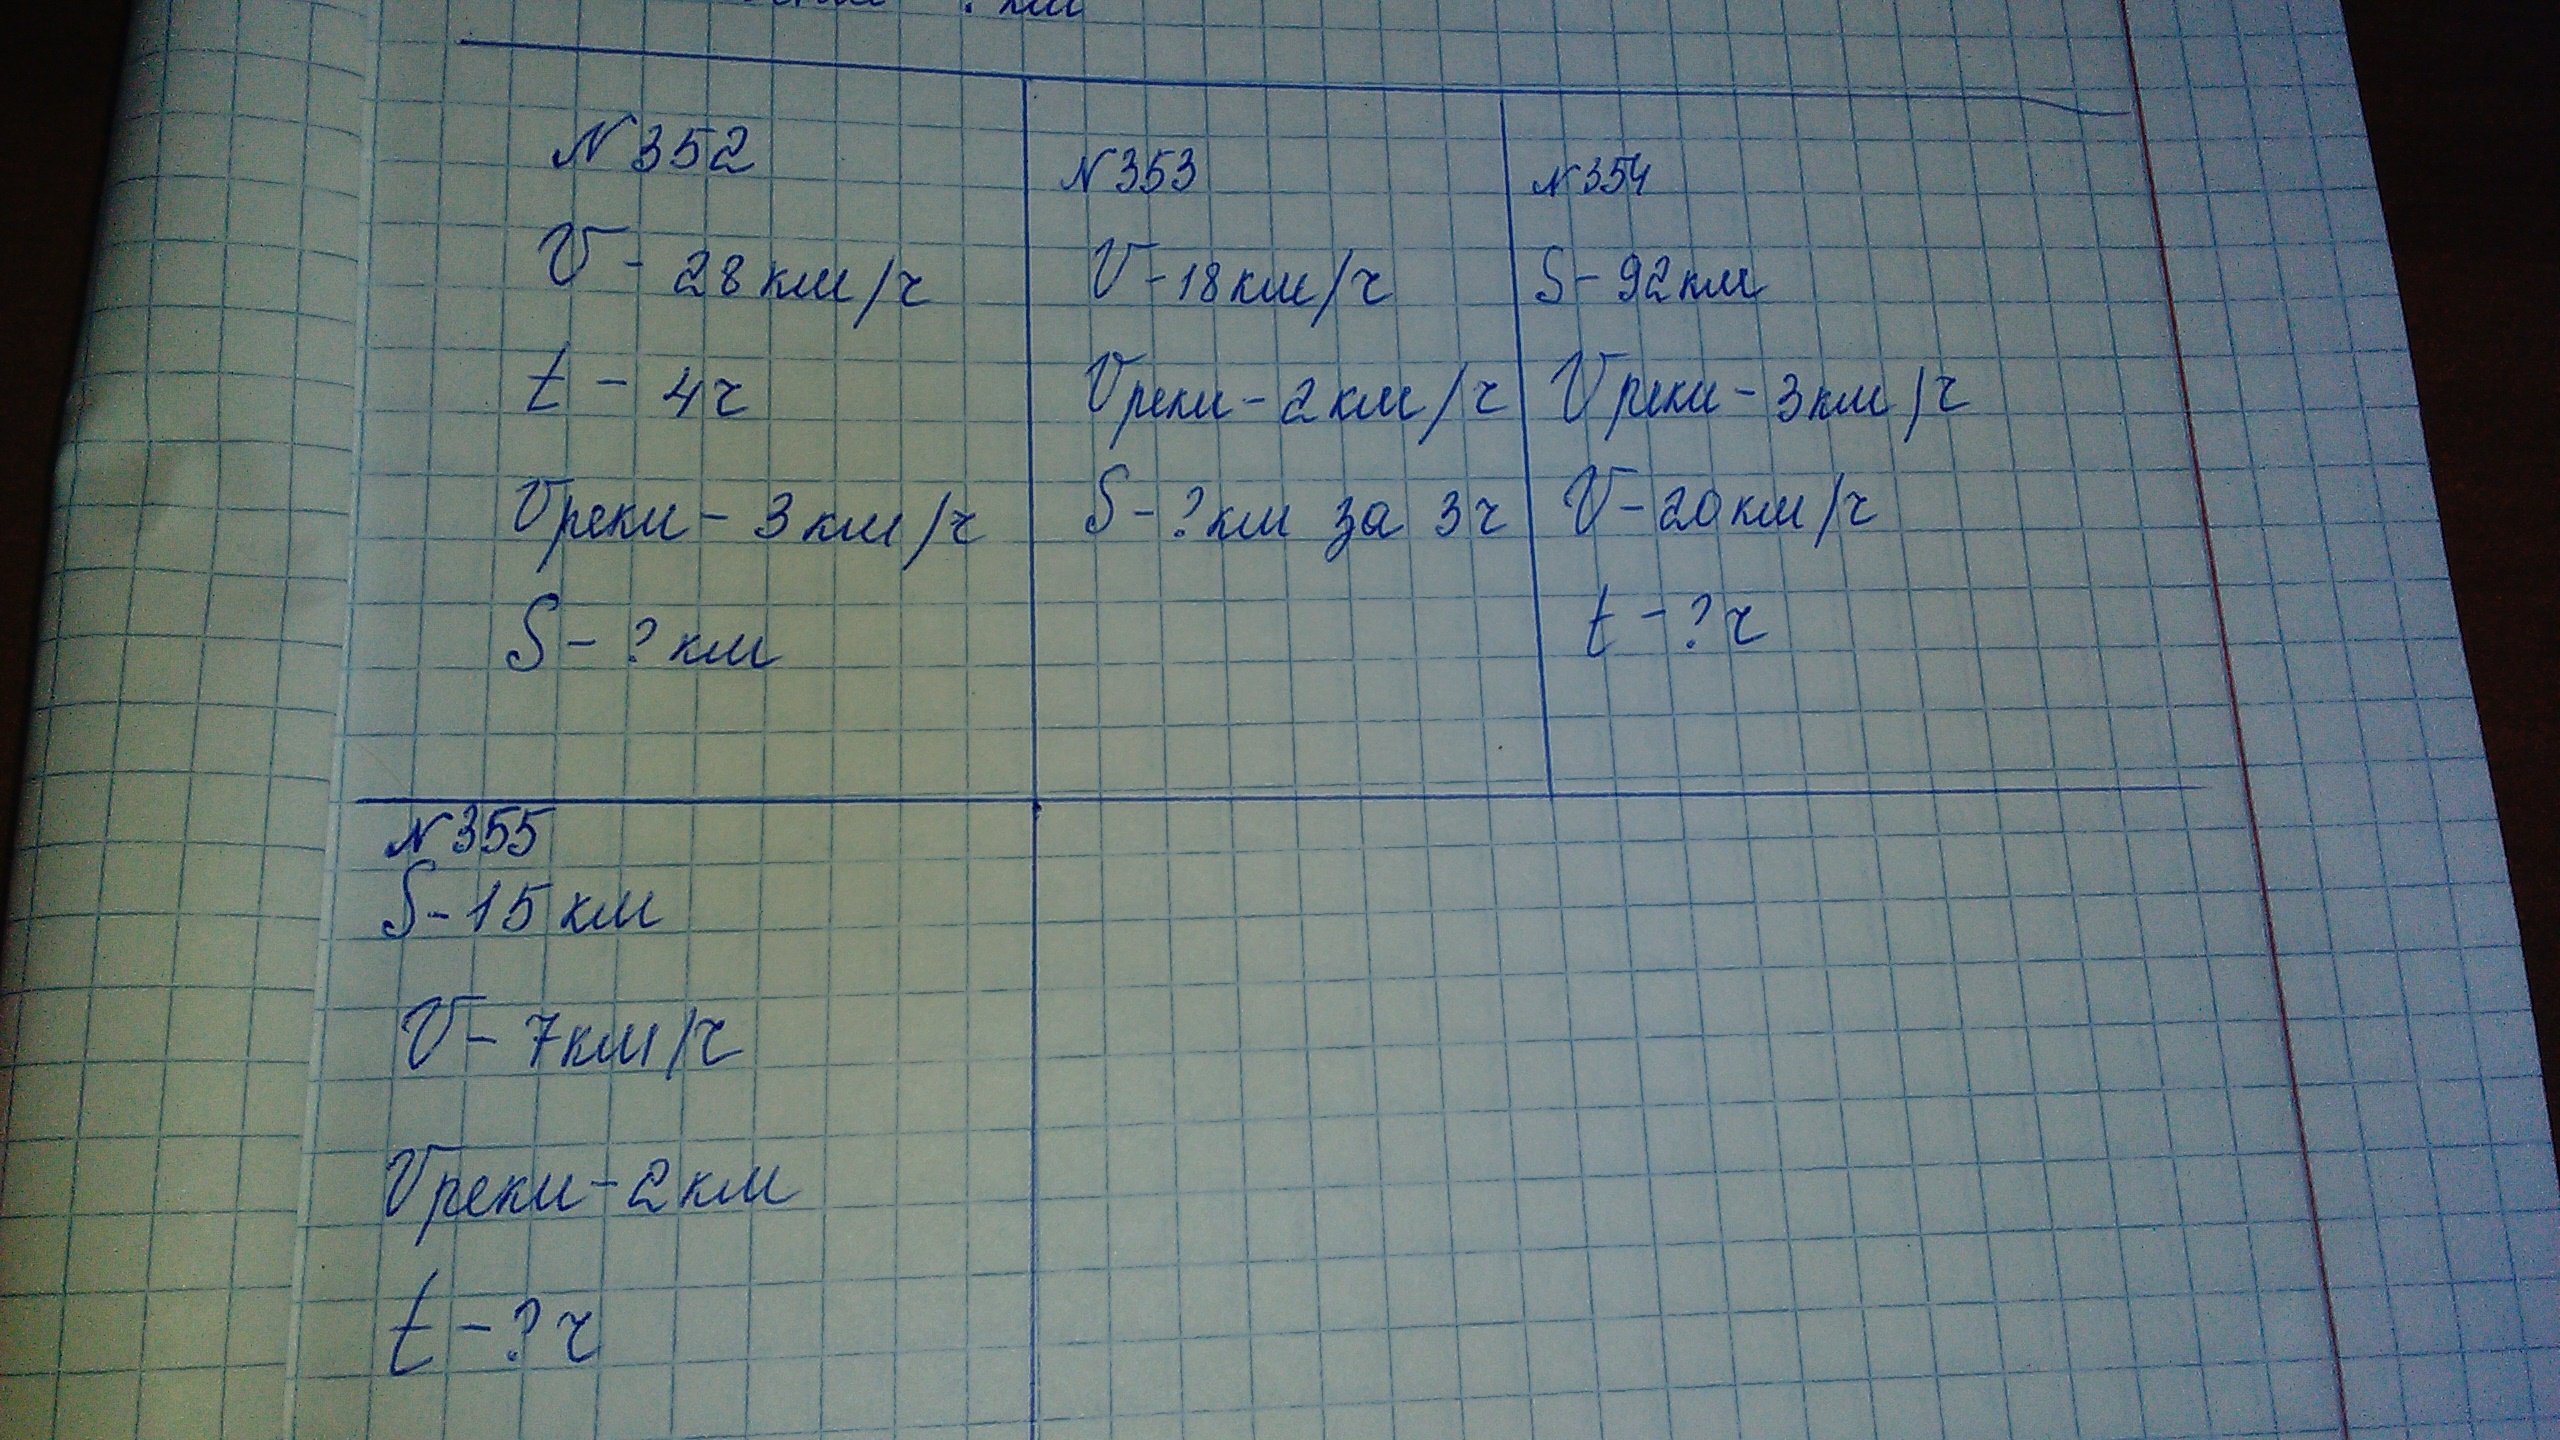 ? км
N 352
V - 28 км/ч
t - 4ч
Vреки - 3 км/ч
S - ? км
N 353
V - 18 км/ч
Vреки - 2 км/ч
S - ? км за 3ч
N 354
S - 92 км
Vреки - 3 км/ч
V - 20 км/ч
t - ? ч
N 355
S - 15 км
V - 7 км/ч
Vреки - 2 км
t - ? ч